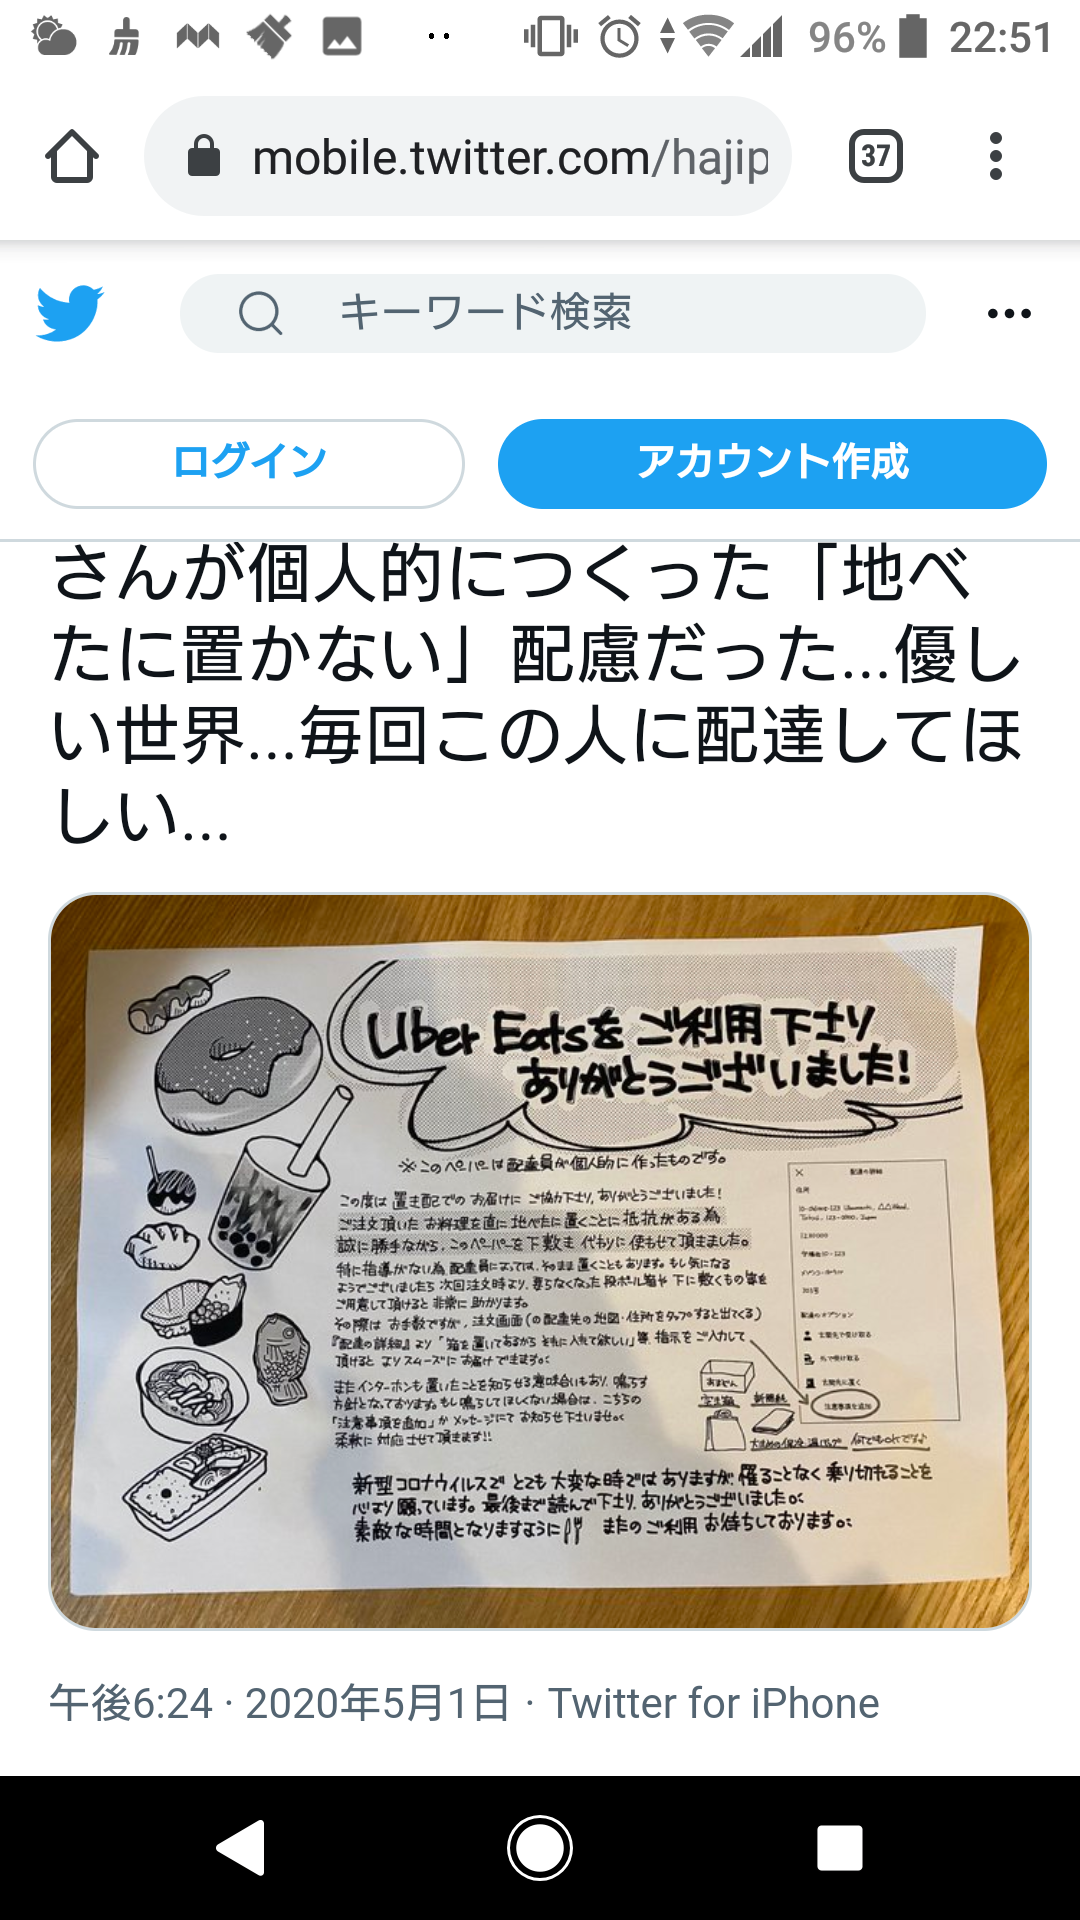 96% 22:51
mobile.twitter.com/hajip
37
キーワード検索
ログイン
アカウント作成
さんが個人的につくった「地べ
たに置かない」配慮だった...優し
い世界...毎回この人に配達してほ
しい...
Uber Eatsを ご利用下さり
ありがとうございました!
※このペーパーは配達員が個人的に作ったものです。
この度は置き配でのお届けにご協力下さり、ありがとうございました!
ご注文頂いたお料理を直に地べたに置くことに抵抗がある為
誠に勝手ながら、このペーパーを下敷き代わりに使わせて頂きました。
特に指導がない為、配達員によっては、そのまま置くこともあります。もし気になる
ようでございましたら次回注文時より、要らなくなった段ボール箱や下に敷くもの等を
ご用意して頂けると非常に助かります。
その際はお手数ですが、注文画面(の配達先の地図・住所をタップすると出てくる)
『配達の詳細』より「箱を置いてあるからそれに入れて欲しい」等、指示をご入力して
頂けるとよりスムーズにお届けできます。
またインターホンも置いたことを知らせる意味合いもあり、鳴らす
方針となっております。もし鳴らしてほしくない場合は、こちらの
「注意事項を追加」かメッセージにてお知らせ下さいませ。
柔軟に対応させて頂きます!!
配達の詳細
住所
303号
配達のオプション
玄関先で受け取る
外で受け取る
玄関先に置く
注意事項を追加
空き箱
新聞紙
何でもOKです
新型コロナウイルスでとても大変な時ではありますが、罹ることなく乗り切れることを
心より願っています。最後まで読んで下さり、ありがとうございました。
素敵な時間となりますように またのご利用お待ちしております。
午後6:24 · 2020年5月1日 · Twitter for iPhone